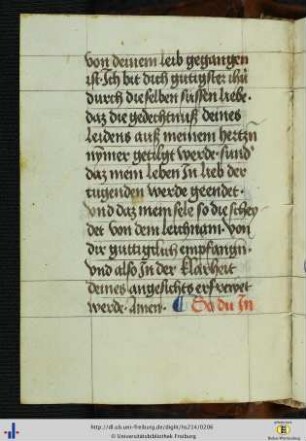 von deinem leib gegangen
ist. Ich bit dich gutigster ihū
durch die selben sussen liebe.
daz die gedechtnuß deines
leidens auß meinem hertzn̄
nÿmer getilgt werde. sund̛
daz mein leben In lieb der
tugenden werde geendet.
vnd daz mein sele so die schey
det von dem leichnam. von
dir guttigclich empfangn̄.
vnd also In der klarheit
deines angesichts erfrewet
werde. Amen. So du In
http://dl.ub.uni-freiburg.de/diglit/hs214/0206
© Universitätsbibliothek Freiburg